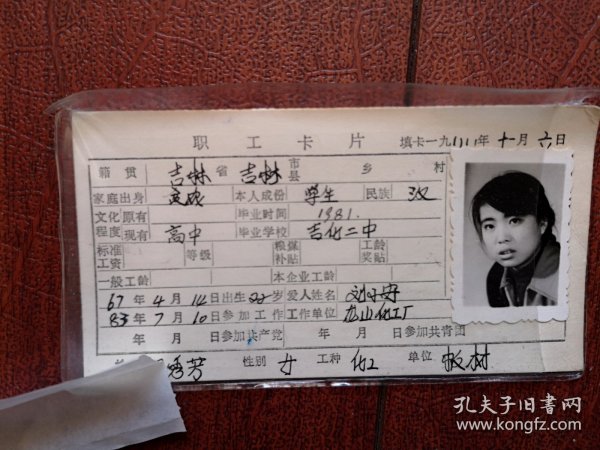 职工卡片 填卡一九 年十月六日
籍贯 吉林省 吉林市县 乡 村
家庭出身 本人成份 学生 民族 汉
文化程度 原有 毕业时间 1981.
现有 高中 毕业学校 吉化二中
标准工资 等级 粮煤补贴 工龄奖贴
一般工龄 本企业工龄
67年4月14日出生 岁 爱人姓名
83年7月10日参加工作 工作单位 龙山化工厂
年 月 日参加共产党 年 月 日参加共青团
秀芳 性别 女 工种 化工 单位 板材
孔夫子旧书网